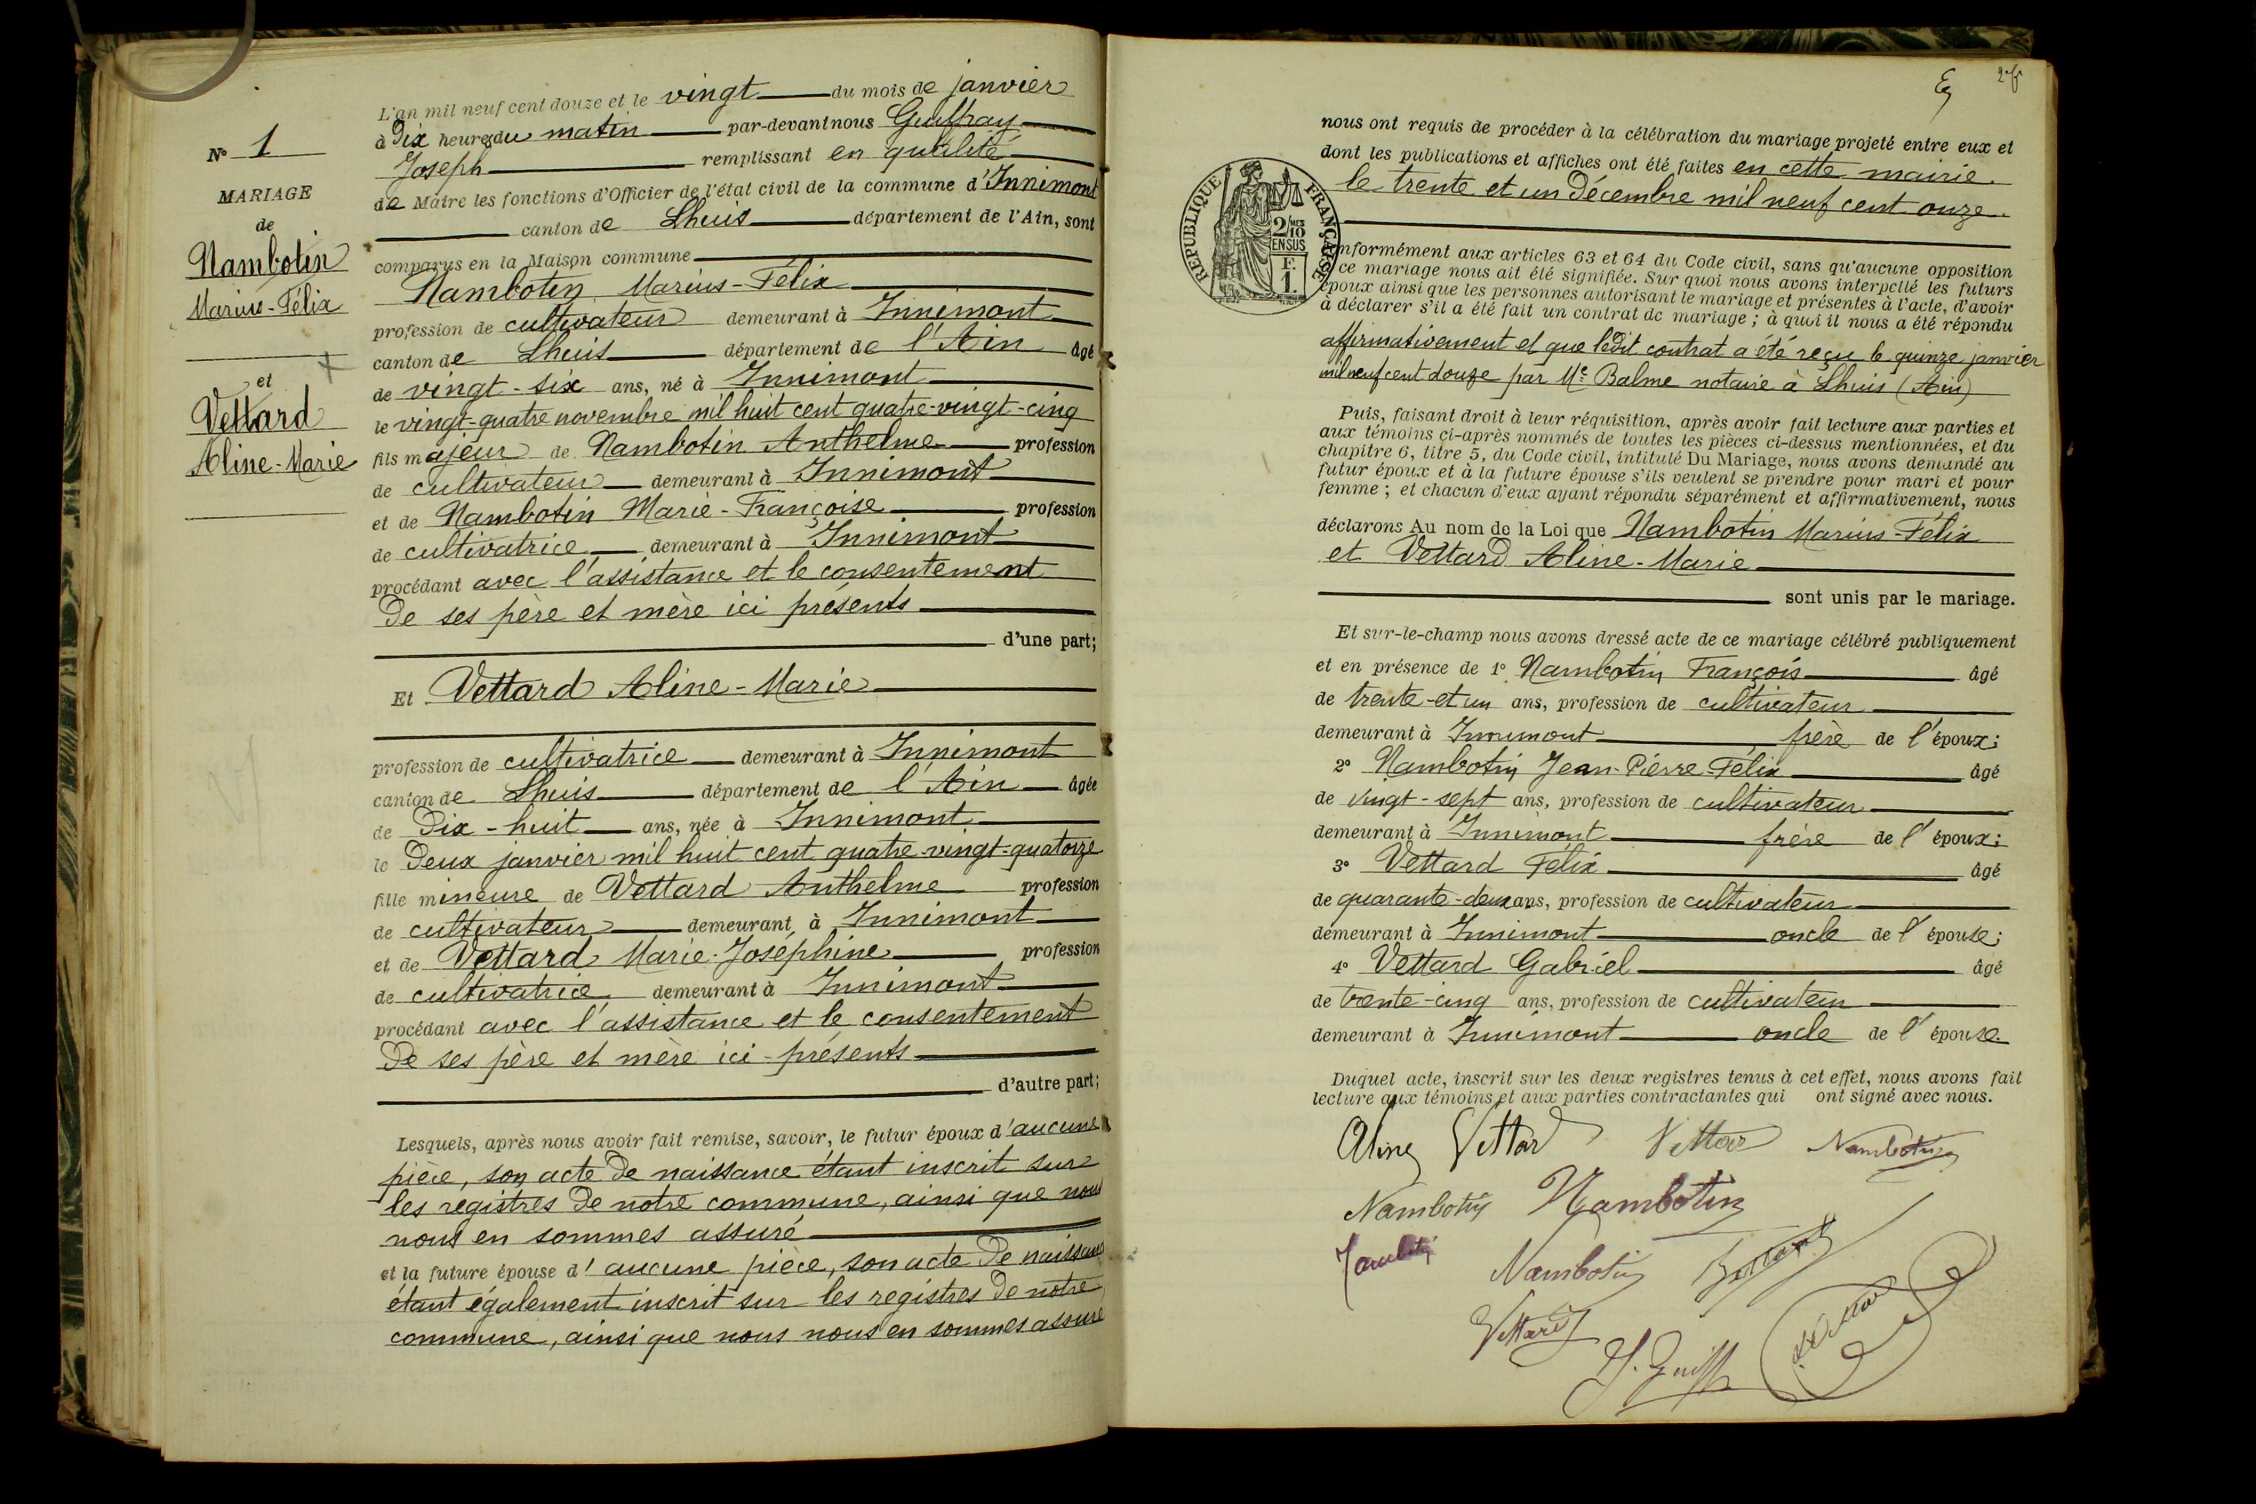 L'an mil neuf cent douze et le vingt du mois de janvier
à Dix heures du matin par-devant nous
Joseph remplissant en qualité
de Maire les fonctions d'Officier de l'état civil de la commune d'Innimont
canton de Lhuis département de l'Ain, sont
comparus en la Maison commune
Nambotin Marius-Félix
profession de cultivateur demeurant à Innimont
canton de Lhuis département de l'Ain âgé
de vingt-six ans, né à Innimont
le vingt-quatre novembre mil huit cent quatre-vingt-cinq
fils majeur de Nambotin Anthelme profession
de cultivateur demeurant à Innimont
et de Nambotin Marie-Françoise profession
de cultivatrice demeurant à Innimont
procédant avec l'assistance et le consentement
De ses père et mère ici présents
d'une part;
Et Vettard Aline-Marie
profession de cultivatrice demeurant à Innimont
canton de Lhuis département de l'Ain âgée
de Dix-huit ans, née à Innimont
le Deux janvier mil huit cent quatre-vingt-quatorze
fille mineure de Vettard Anthelme profession
de cultivateur demeurant à Innimont
et de Vettard Marie-Joséphine profession
de cultivatrice demeurant à Innimont
procédant avec l'assistance et le consentement
De ses père et mère ici présents
d'autre part;
Lesquels, après nous avoir fait remise, savoir, le futur époux d'aucune
pièce, son acte de naissance étant inscrit sur
les registres de notre commune, ainsi que nous
nous en sommes assuré
et la future épouse d'aucune pièce, son acte de naissance
étant également inscrit sur les registres de notre
commune, ainsi que nous nous en sommes assuré
N° 1
MARIAGE
de
Nambotin
Marius-Félix
et
Vettard
Aline-Marie
nous ont requis de procéder à la célébration du mariage projeté entre eux et
dont les publications et affiches ont été faites en cette mairie
le trente et un Décembre mil neuf cent onze.
RÉPUBLIQUE FRANÇAISE
2/10
EN SUS
F.
1.
conformément aux articles 63 et 64 du Code civil, sans qu'aucune opposition
à ce mariage nous ait été signifiée. Sur quoi nous avons interpellé les futurs
époux ainsi que les personnes autorisant le mariage et présentes à l'acte, d'avoir
à déclarer s'il a été fait un contrat de mariage; à quoi il nous a été répondu
affirmativement et que ledit contrat a été reçu le quinze janvier
mil neuf cent douze par Me Balme notaire à Lhuis (Ain)
Puis, faisant droit à leur réquisition, après avoir fait lecture aux parties et
aux témoins ci-après nommés de toutes les pièces ci-dessus mentionnées, et du
chapitre 6, titre 5, du Code civil, intitulé Du Mariage, nous avons demandé au
futur époux et à la future épouse s'ils veulent se prendre pour mari et pour
femme; et chacun d'eux ayant répondu séparément et affirmativement, nous
déclarons Au nom de la Loi que Nambotin Marius-Félix
et Vettard Aline-Marie
sont unis par le mariage.
Et sur-le-champ nous avons dressé acte de ce mariage célébré publiquement
et en présence de 1° Nambotin François âgé
de trente-et un ans, profession de cultivateur
demeurant à Innimont frère de l'époux;
2° Nambotin Jean-Pierre-Félix âgé
de vingt-sept ans, profession de cultivateur
demeurant à Innimont frère de l'époux;
3° Vettard Félix âgé
de quarante-deux ans, profession de cultivateur
demeurant à Innimont oncle de l'épouse;
4° Vettard Gabriel âgé
de trente-cinq ans, profession de cultivateur
demeurant à Innimont oncle de l'épouse.
Duquel acte, inscrit sur les deux registres tenus à cet effet, nous avons fait
lecture aux témoins et aux parties contractantes qui ont signé avec nous.
Aline Vettard Vettard Nambotin
Nambotin Nambotin
Nambotin
Vettard